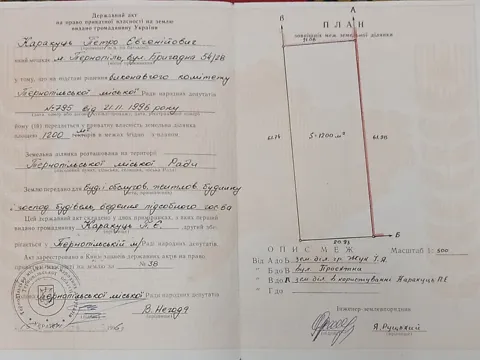 Державний акт
на право приватної власності на землю
видано громадянину України
Каракуць Петро Євгенійович
м. Тернопіль, вул. Бригадна 54/28
у тому, що на підставі рішення виконавчого комітету
Тернопільської міської Ради народних депутатів
№ 795 від 21.11.1996 року
передається у приватну власність земельна ділянка
площею 1200 м² гектарів в межах згідно з планом
Земельна ділянка розташована на території
Тернопільської міської Ради
Землю передано для буд. і обслугов. житлов. будинку
господ. будівель, ведення підсобного госп-ва
Цей державний акт складено у двох примірниках, з яких перший
видано громадянину Каракуць П. Є. другий збе-
рігається у Тернопільській м/ Раді народних депутатів.
Акт зареєстровано в Книзі записів державних актів на право
приватної власності на землю за № 58
Тернопільської міської Ради народних депутатів
В. Негода
ПЛАН
зовнішніх меж земельної ділянки
В
А
S=1200 м²
Б
ОПИС МЕЖ
Масштаб 1: 500
Від А до Б зем. діл. гр. Жук Т. Я.
Від Б до В вул. Проектна
Від В до зем. діл. в користуванні Каракуць П. Є
Г до
Інженер-землевпорядник
Я. Руцький